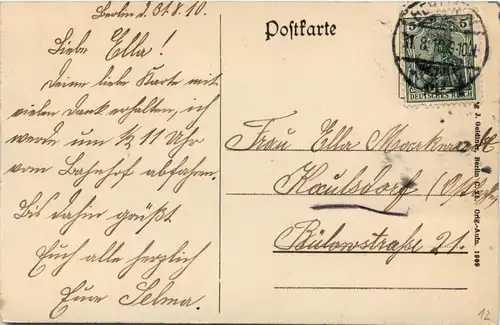 Berlin d. 31.8.10.
Liebe Ella!
Deine liebe Karte mit
vielen Dank erhalten, ich
werde um ½ 11 Uhr
vom Bahnhof abfahren.
Bis dahin grüßt
Euch alle herzlich
Eure Selma.
Postkarte
5 5
DEUTSCHES REICH
Frau Ella
Kaulsdorf
Bülowstraße 21.
Berlin Orig.-Aufn. 1909
12